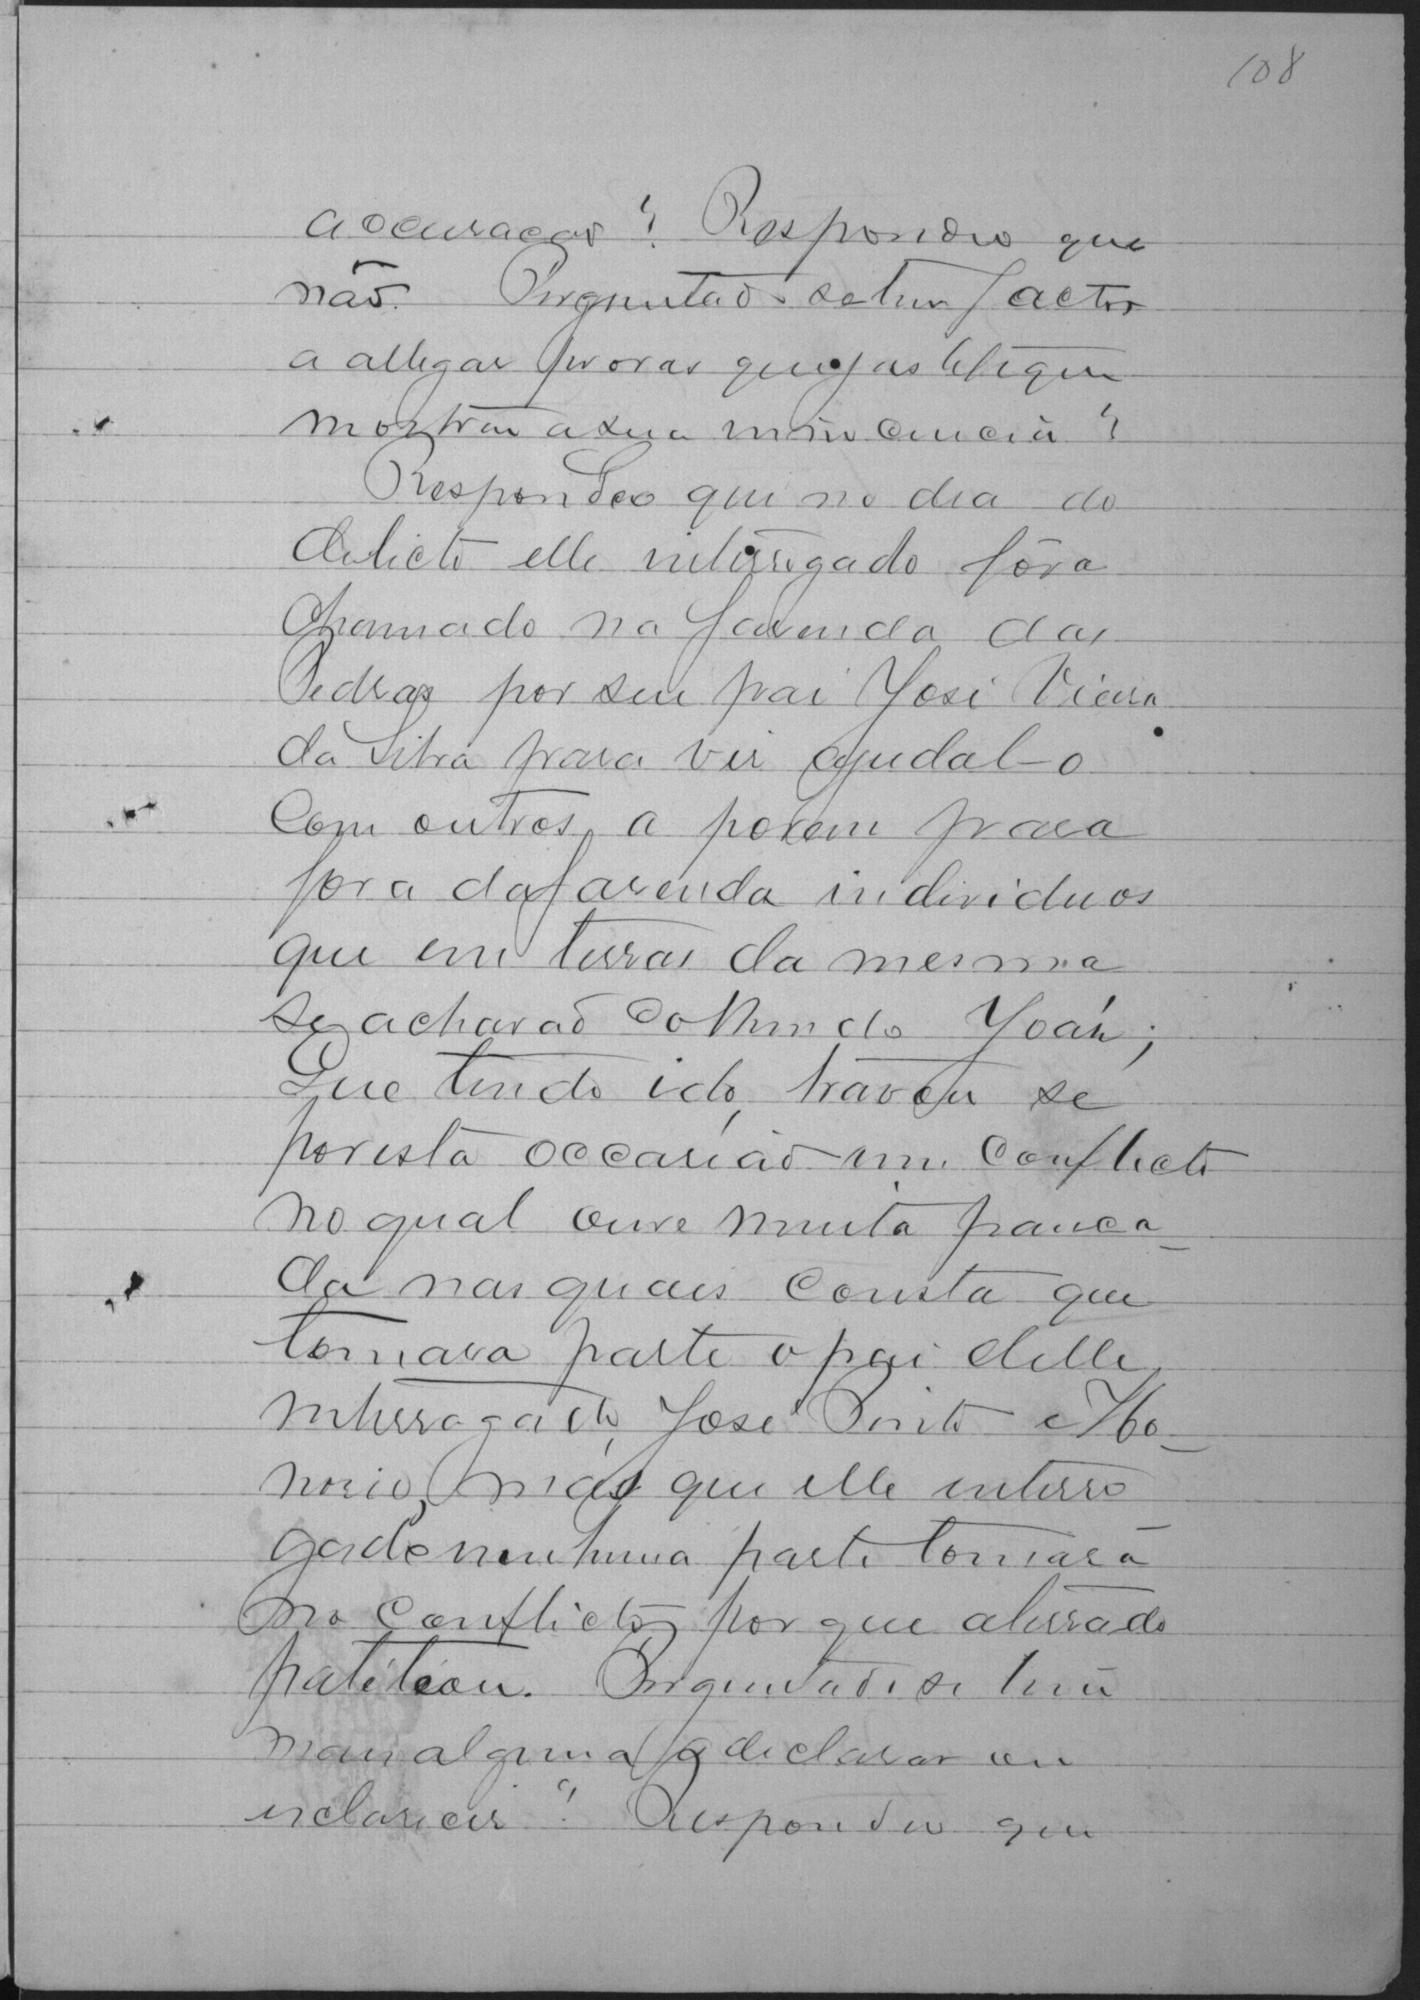 108
accusação? Respondeo que
não. Perguntado se tem factos
a allegar provas que justifiquem
mostrem a sua innocencia?
Respondeo que no dia do
delicto elle interrogado fôra
chamado na fazenda das
Pedras por seu pai José Vieira
da Silva para vir ajudal-o
com outros, a porem para
fora da fazenda individuos
que em terras da mesma
se achavaõ colhendo
Que tendo ido, travou se
por esta occasiaõ um conflicto
no qual ouve muita panca-
da nas quais consta que
tomara parte o pai delle
interrogado, José Pinto e Ho-
norio, mas que elle interro
gado nenhuma parte tomara
no conflicto, porque aterrado
Perguntado se tem
mais alguma a declarar ou
esclarecer? Respondeo que